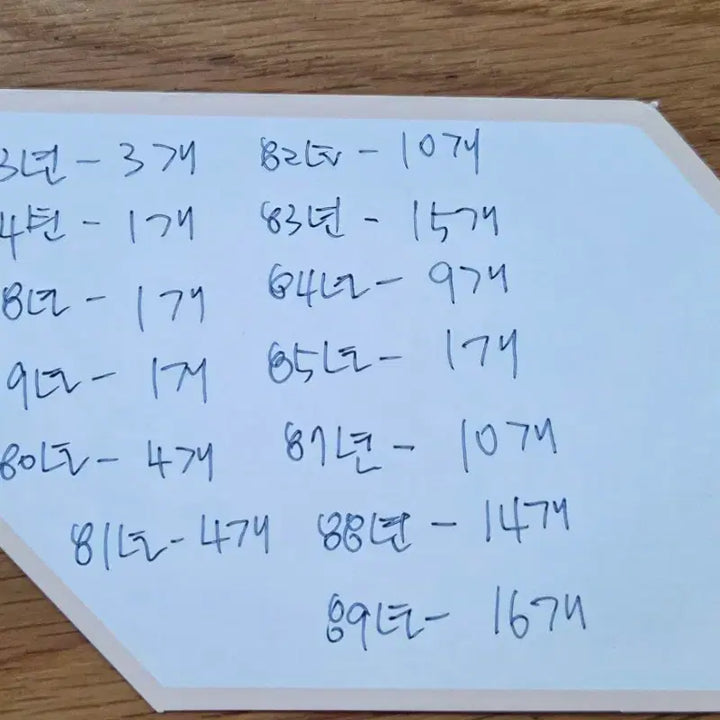 3년 - 3개
4년 - 1개
8년 - 1개
9년 - 1개
80년 - 4개
81년 - 4개
82년 - 10개
83년 - 15개
84년 - 9개
85년 - 1개
87년 - 10개
88년 - 14개
89년 - 16개